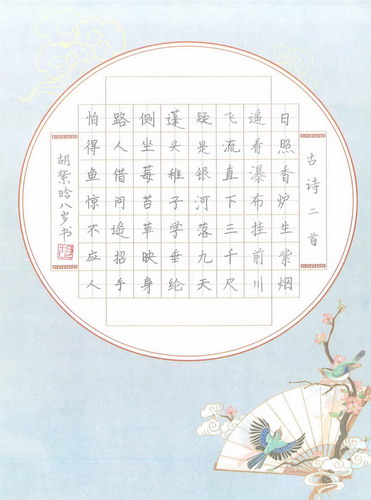 古诗二首
日照香炉生紫烟
遥看瀑布挂前川
飞流直下三千尺
疑是银河落九天
蓬头稚子学垂纶
侧坐莓苔草映身
路人借问遥招手
怕得鱼惊不应人
胡晗八岁书